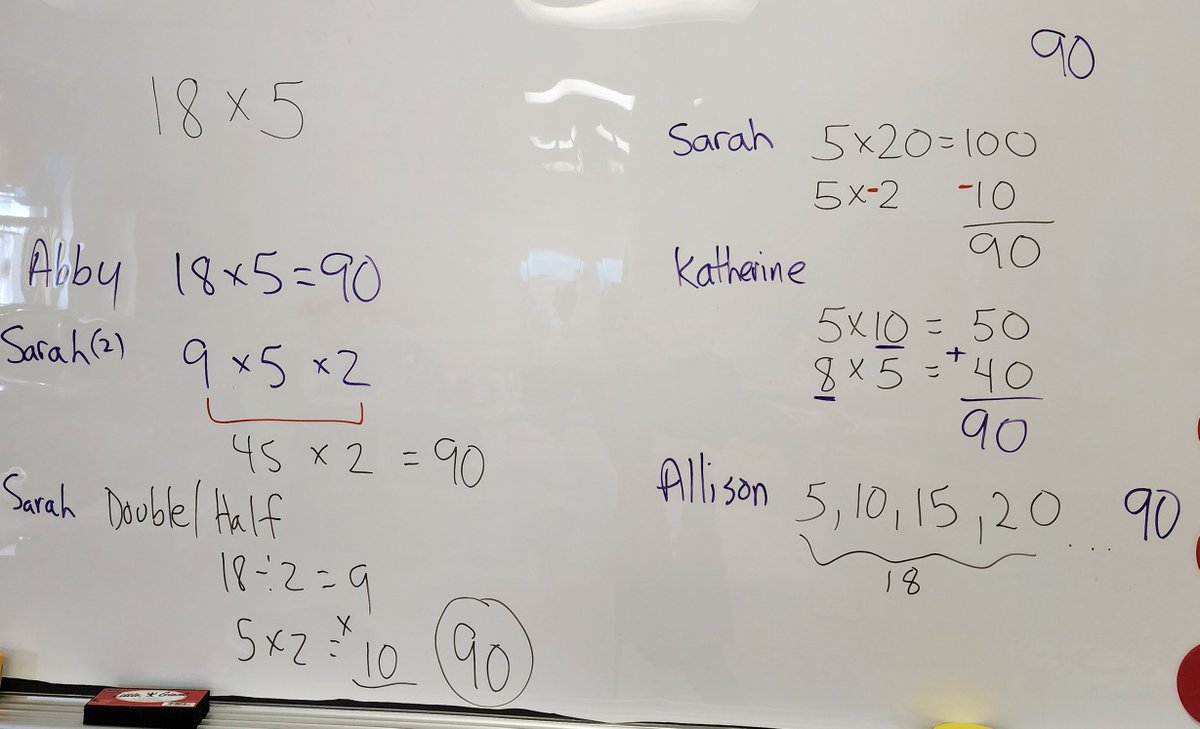 18 × 5
Abby 18 × 5 = 90
Sarah (2) 9 × 5 × 2
45 × 2 = 90
Sarah Double/Half
18 ÷ 2 = 9
5 × 2 = × 10 90
90
Sarah 5 × 20 = 100
5 × -2 -10
90
Katherine
5 × 10 = 50
8 × 5 = + 40
90
Allison 5, 10, 15, 20 .... 90
18